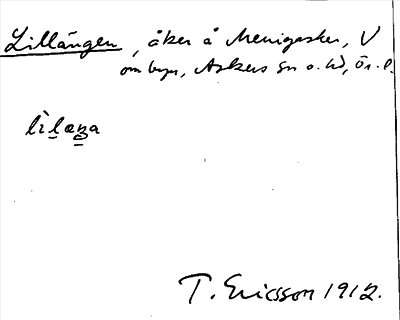 Lillängen, åker å Menigasker, V
om byn, Askers sn o. hd, Ör. l.
lìlæŋa
T. Ericsson 1912.